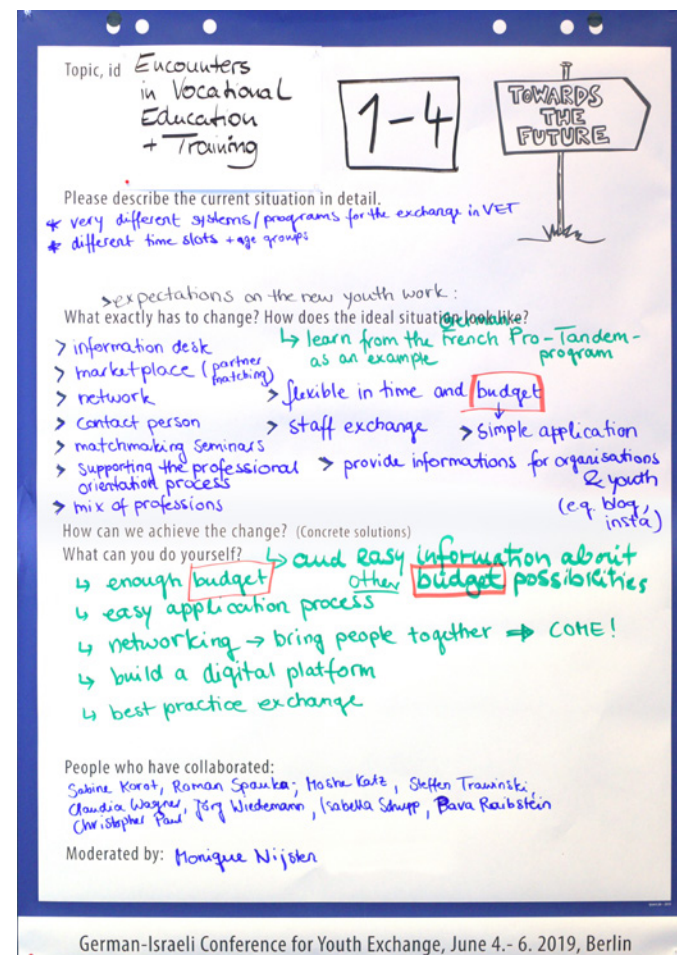 Topic, id Encounters
in Vocational
Education
+ Training
1-4
TOWARDS
THE
FUTURE
Please describe the current situation in detail.
* very different systems/programs for the exchange in VET
* different time slots + age groups
> expectations on the new youth work:
What exactly has to change? How does the ideal situation look like?
> information desk
> marketplace (partner matching)
> network
> contact person
> matchmaking seminars
> supporting the professional
orientation process
> mix of professions
↳ learn from the French Pro-Tandem-
as an example program
> flexible in time and budget
> staff exchange > simple application
> provide informations for organisations
& youth
(e.g. blog,
insta)
How can we achieve the change? (Concrete solutions)
What can you do yourself? ↳ and easy information about
other budget possibilities
↳ enough budget
↳ easy application process
↳ networking → bring people together ➡ COME!
↳ build a digital platform
↳ best practice exchange
People who have collaborated:
Sabine Korot, Roman Spauka; Moshe Katz, Steffen Trawinski,
Claudia Wagner, Jörg Wiedemann, Isabella Schupp, Bava Raibstein
Christopher Paul
Moderated by: Monique Nijsten
German-Israeli Conference for Youth Exchange, June 4.- 6. 2019, Berlin